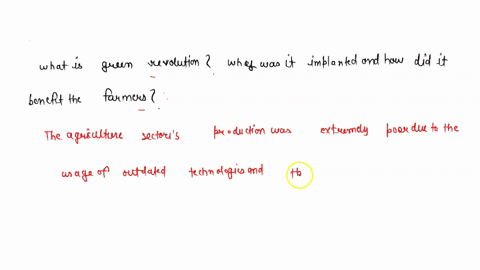 what is green revolution? whey was it implanted and how did it
benefit the farmers?
The agriculture sectori's production was extremely poor due to the
usage of outdated technologies and tb